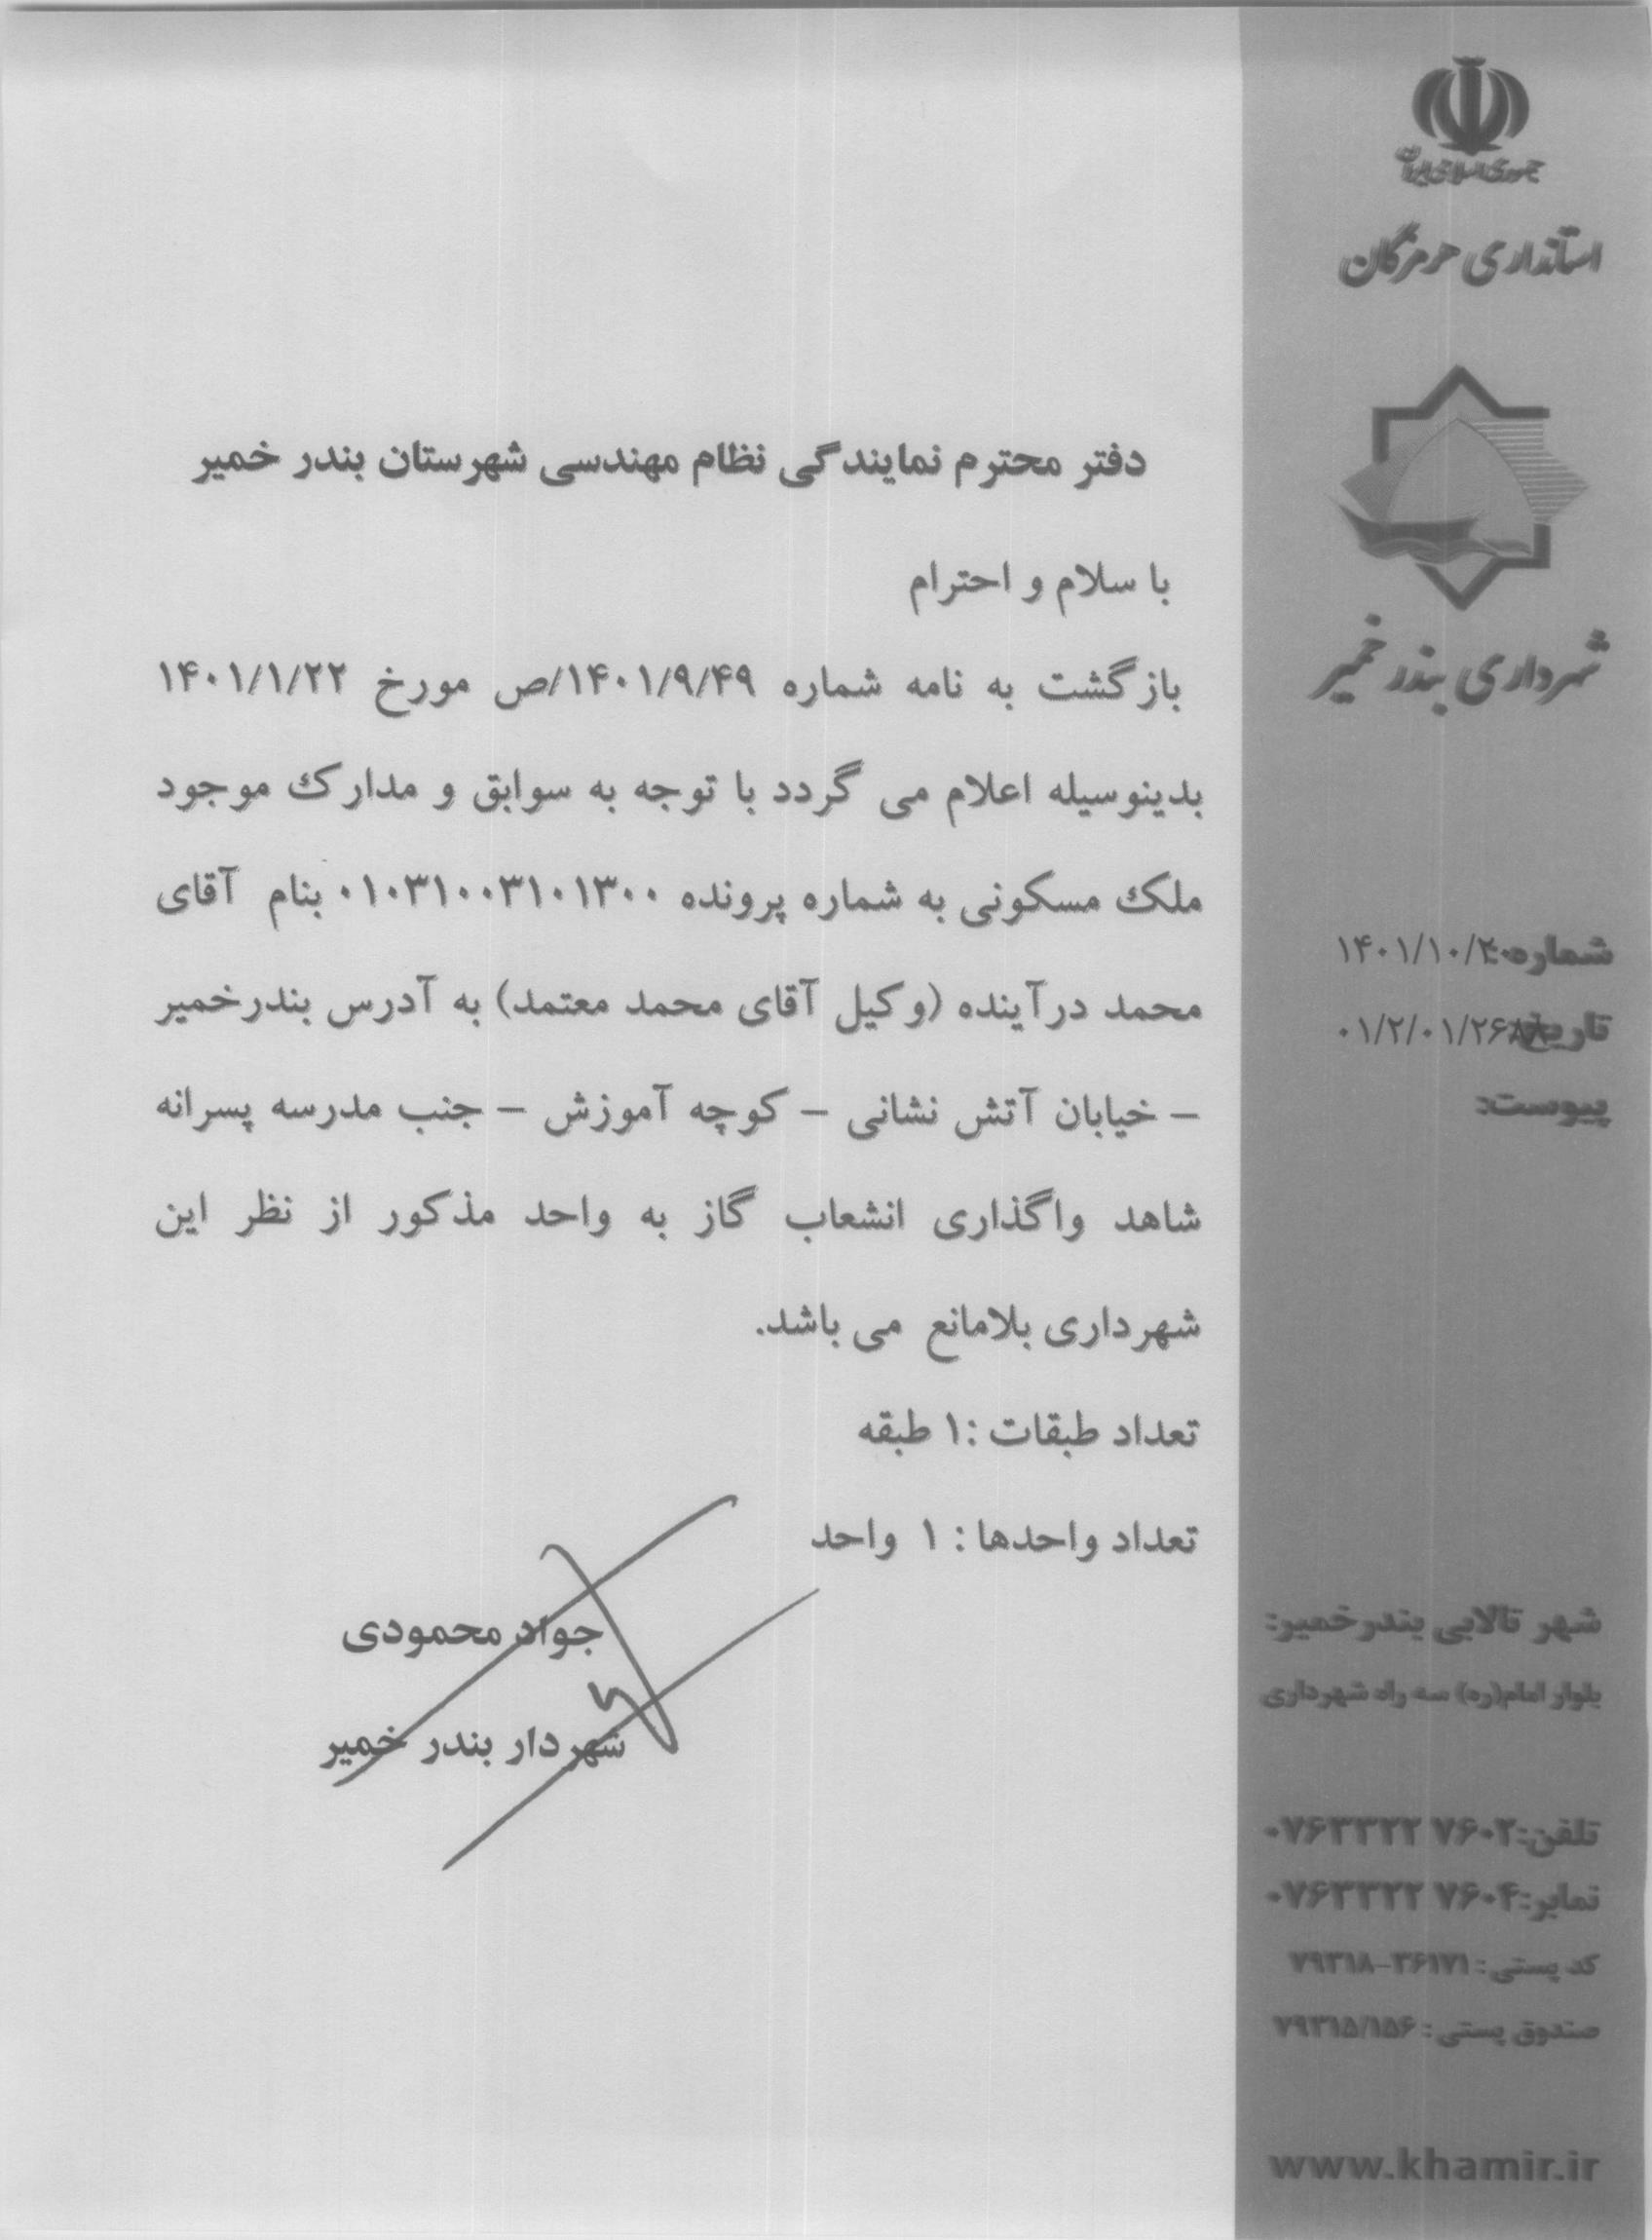 جمهوری اسلامی ایران
استانداری هرمزگان
شهرداری بندر خمیر
شماره:
۱۴۰۱/۱۰/۲۰
تاریخ:
۰۱/۲/۰۱/۲۶۸۸
پیوست:
دفتر محترم نمایندگی نظام مهندسی شهرستان بندر خمیر
با سلام و احترام
بازگشت به نامه شماره ۱۴۰۱/۹/۴۹/ص مورخ ۱۴۰۱/۱/۲۲
بدینوسیله اعلام می گردد با توجه به سوابق و مدارک موجود
ملک مسکونی به شماره پرونده ۰۱۰۳۱۰۰۳۱۰۱۳۰۰ بنام آقای
محمد درآینده (وکیل آقای محمد معتمد) به آدرس بندرخمیر
– خیابان آتش نشانی – کوچه آموزش – جنب مدرسه پسرانه
شاهد واگذاری انشعاب گاز به واحد مذکور از نظر این
شهرداری بلامانع می باشد.
تعداد طبقات :۱ طبقه
تعداد واحدها : ۱ واحد
جواد محمودی
شهردار بندر خمیر
شهر تالابی بندرخمیر:
بلوار امام(ره) سه راه شهرداری
تلفن:۰۷۶۳۳۲۲ ۷۶۰۲
نمابر:۰۷۶۳۳۲۲ ۷۶۰۴
کد پستی : ۳۶۱۷۱–۷۹۳۱۸
صندوق پستی : ۷۹۳۱۵/۱۵۶
www.khamir.ir